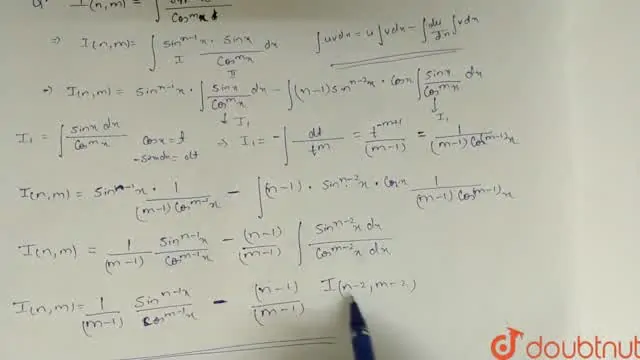 I(n,m) = ∫ sinⁿx / cosᵐx
⇒ I(n,m) = ∫ sinⁿ⁻¹x · sinx/cosᵐx dx ∫uvdx = u∫vdx − ∫du/dx ∫vdx
I II
⇒ I(n,m) = sinⁿ⁻¹x · ∫ sinx/cosᵐx dx − ∫(n-1) sinⁿ⁻²x · cosx ∫ sinx/cosᵐx dx
↓ I₁ ↓ I₁
I₁ = ∫ sinx dx / cosᵐx cosx = t ⇒ I₁ = −∫ dt/tᵐ = t⁻ᵐ⁺¹/(m-1) = 1/((m-1) cos⁽ᵐ⁻¹⁾x)
-sinxdx = dt
I(n,m) = sinⁿ⁻¹x · 1/((m-1) cosᵐ⁻¹x) − ∫(n-1) · sinⁿ⁻²x · cosx 1/((m-1) cos⁽ᵐ⁻¹⁾x)
I(n,m) = 1/(m-1) sinⁿ⁻¹x/cosᵐ⁻¹x − (n-1)/(m-1) ∫ sinⁿ⁻²x dx / cosᵐ⁻²x dx
I(n,m) = 1/(m-1) sinⁿ⁻¹x/cosᵐ⁻¹x − (n-1)/(m-1) I(n-2, m-2)
doubtnut